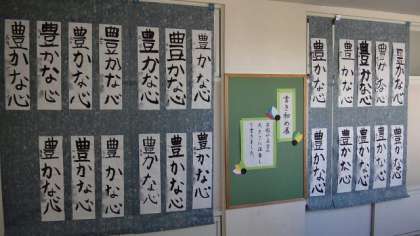 豊かな心
豊かな心
豊かな心
豊かな心
豊かな心
豊かな心
豊かな心
豊かな心
豊かな心
豊かな心
豊かな心
豊かな心
豊かな心
書き初め展
豊かな心
豊かな心
豊かな心
豊かな心
豊かな心
豊かな心
豊かな心
豊かな心
豊かな心
豊かな心